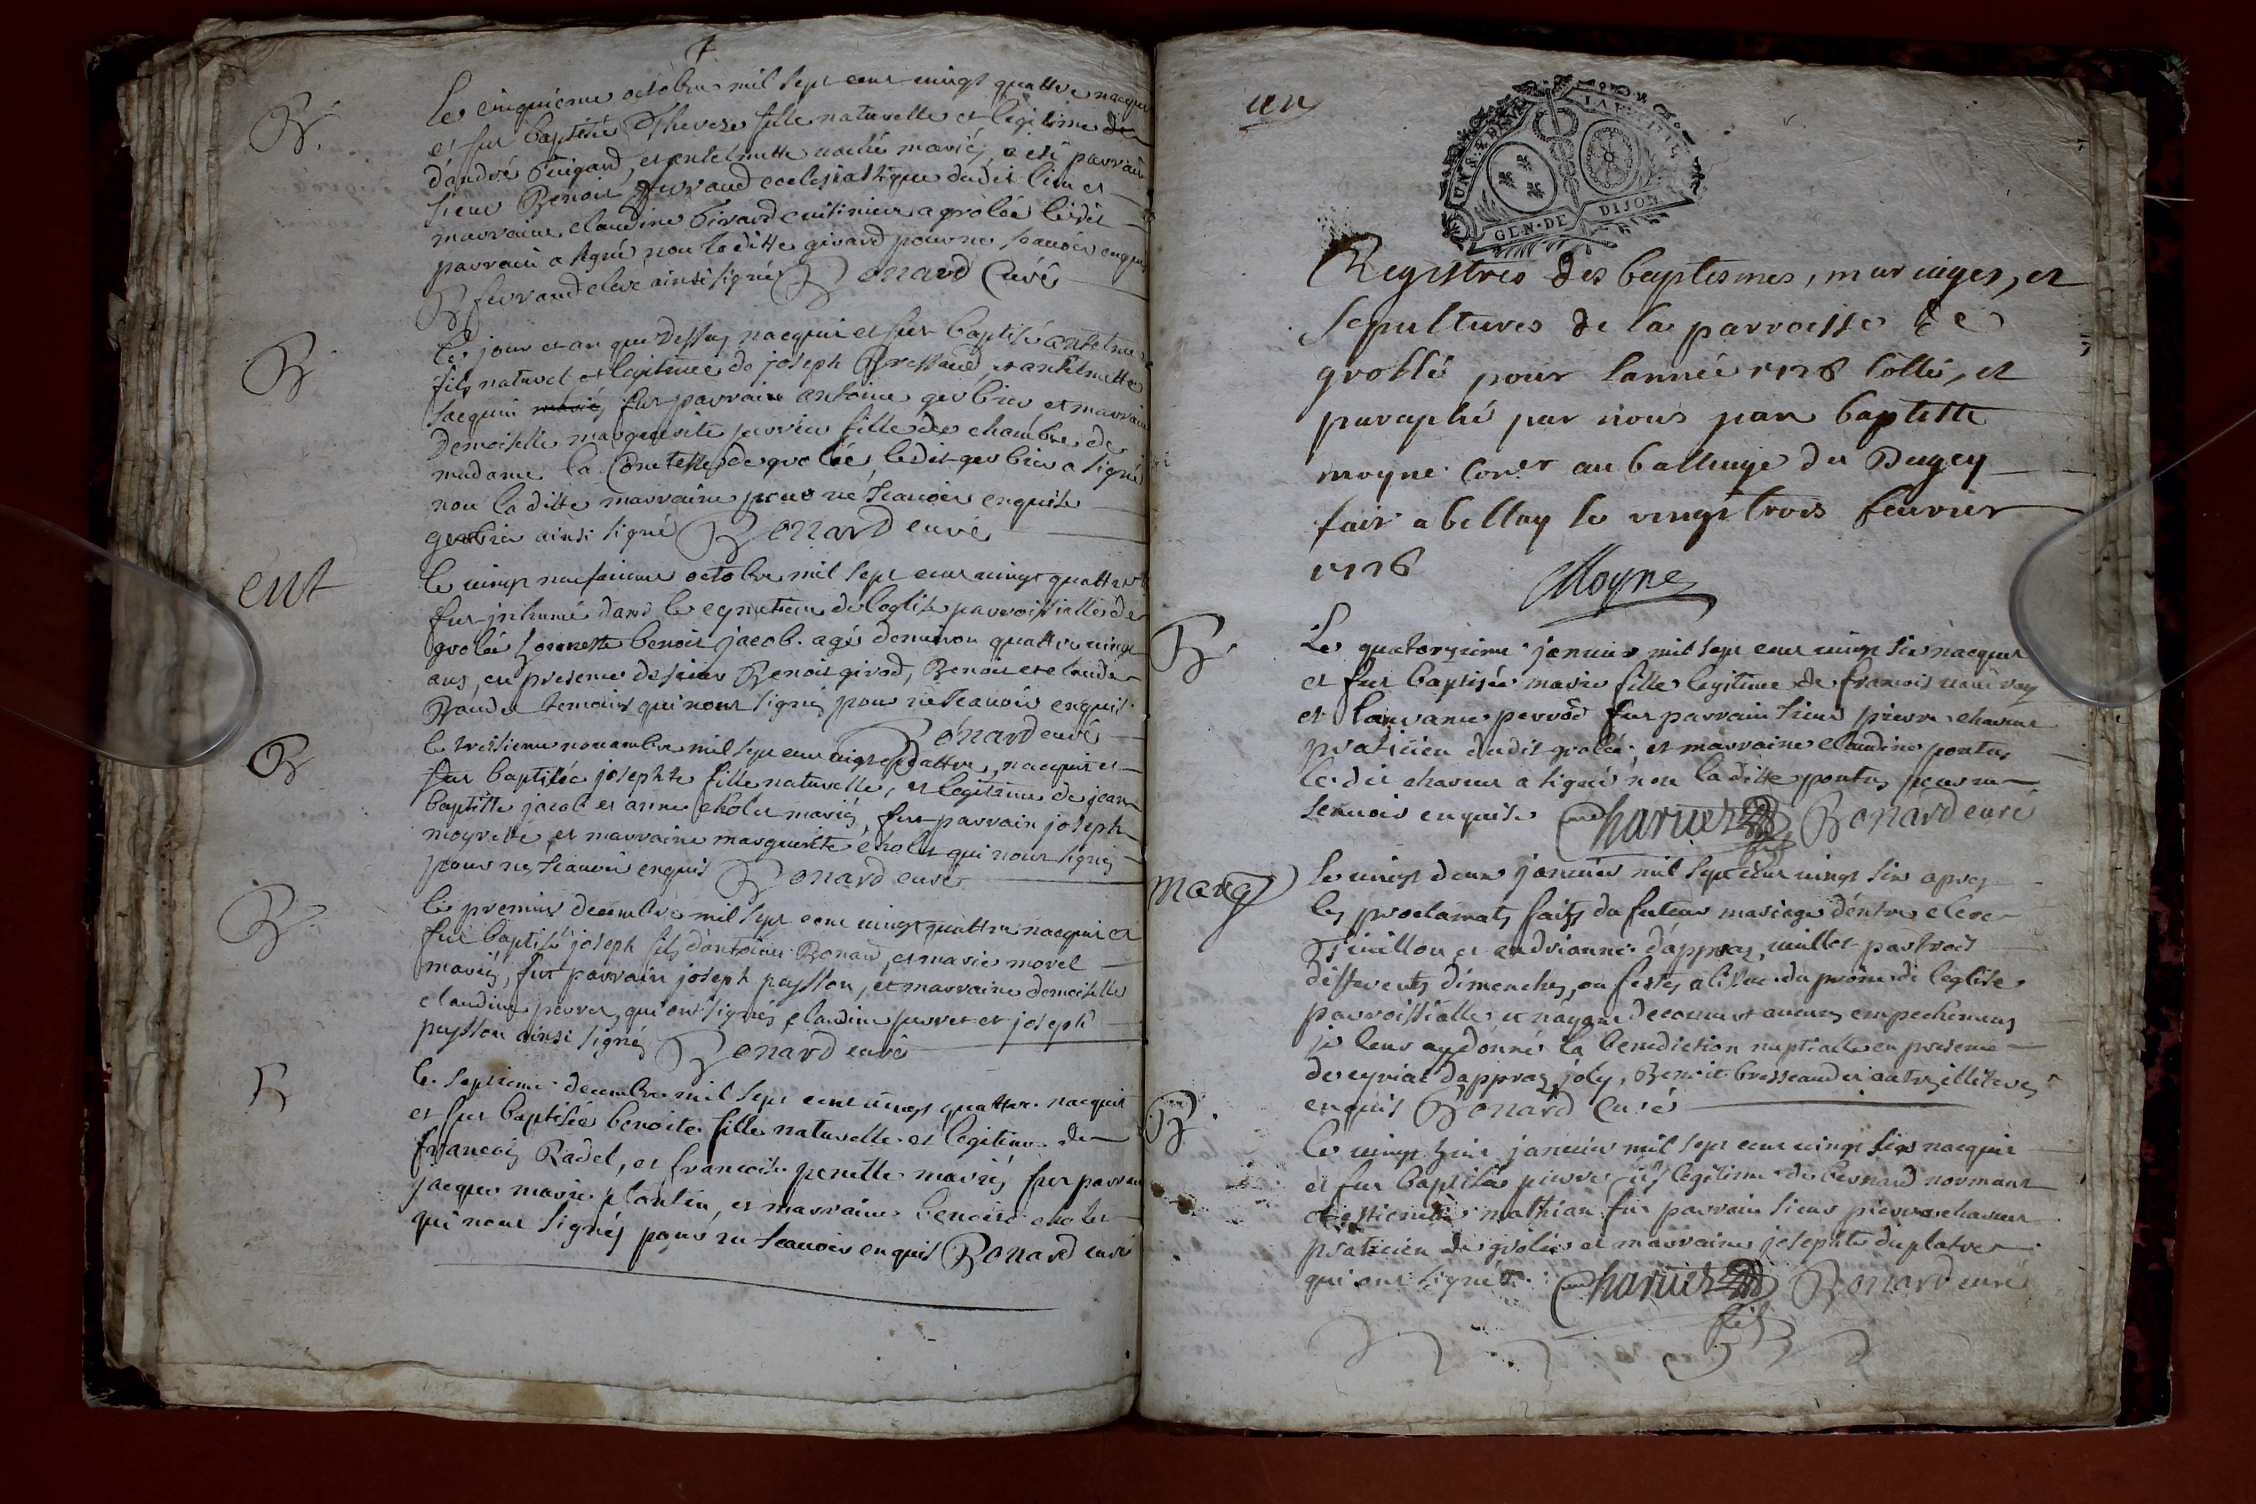 B.
Le cinquieme octobre mil sept cent vingt quattre nacquit
et fut baptisée Therese fille naturelle et legitime de
d'andré Guigard, et antelmette mariés, a esté parrain
sieur Benoit ferraud ecclesiastique dudit lieu et
marraine claudine Girard cuisiniere a grolée ledit
parrain a signé non laditte girard pour ne scavoir enquis
ferraud clerc ainsi signé Bonard Curé
B
Le jour et an que dessus nacquit et fut baptisé antelme
fils naturel et legitime de joseph Bressaud, et antelmette
jacquin mariés fut parrain antoine gerbier et marraine
Demoiselle marguerite fille de chambre de
madame la Comtesse de grolée, ledit gerbier a signé
non laditte marraine pour ne scavoir enquise
gerbier ainsi signé Bonard curé
ent
le vingt neufvieme octobre mil sept cent vingt quattre
fut inhumé dans le cymetiere de l'eglise parroissialle de
grolée honneste benoit jacob agé d'environ quattre vingt
ans, en presence de sieur Benoit girod, Benoit et claude
temoins qui n'ont signés pour ne scavoir enquis
Bonard curé
B
le troisieme novambre mil sept cent vingt quattre, nacquit et
fut baptisée josephte fille naturelle, et legitime de jean
baptiste jacob et anne cholet mariés, fut parrain joseph
moyrette et marraine marguerite cholet qui n'ont signés
pour ne scavoir enquis Bonard curé
B.
le premier decembre mil sept cent vingt quattre nacquit et
fut baptisé joseph fils d'antoine Bonard, et marie morel
mariés, fut parrain joseph peysson, et marraine demoiselle
claudine perret, qui ont signés claudine perret et joseph
peysson ainsi signés Bonard curé
B
le septieme decembre mil sept cent vingt quattre nacquit
et fut baptisée benoite fille naturelle et legitime de
francois Radel, et francoise penette mariés fut parrain
jacques marie plantin, et marraine benoite cholet
qui n'ont signés pour ne scavoir enquis Bonard curé
un
UN S. 4 DEN.
GEN. DE DIJON
Registres des baptesmes, mariages, et
sepultures de la parroisse de
grollé pour lannée 1726 cotté, et
paraphé par nous jean baptiste
moyne Con.er au balliage du Bugey
fait a bellay le vingt trois feuvrier
1726
Moyne
B.
Le quatorzieme janvier mil sept cent vingt six nacquit
et fut baptisée marie fille legitime de francois
et perrod fut parrain sieur pierre charuet
praticien dudit grolée et marraine claudine pontus
ledit charuet a signé non laditte pontus pour ne
scavoir enquise Charuet Bonard curé
marg
le vingt deux janvier mil sept cent vingt six apres
les proclamats faits du futeur mariage d'entre
et andrianne d'appraz, millet par trois
differents dimenches, ou festes a l'issue du prone de l'eglise
parroissialle et n'ayant decouvert aucuns empechemens
je leur ay donné la benediction nuptialle en presence
de cyriat d'appraz, joly, Benoit bresseaud et autres illiterés
enquis Bonard Curé
B.
le vingt huit janvier mil sept cent vingt six nacquit
et fut baptisé pierre fils legitime de bernard normant
et estiennette mathian fut parrain sieur pierre charuet
praticien de grolée et marraine josephte duplatre
qui ont signés. Charuet Bonard curé
fils